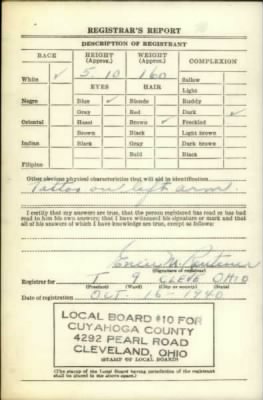 REGISTRAR'S REPORT
DESCRIPTION OF REGISTRANT
RACE HEIGHT (Approx.) WEIGHT (Approx.) COMPLEXION
White ✓ 5 10 160 Sallow
Light
EYES HAIR
Negro Blue ✓ Blonde Ruddy
Gray Red Dark ✓
Oriental Hazel Brown ✓ Freckled
Brown Black Light brown
Indian Black Gray Dark brown
Bald Black
Filipino
Other obvious physical characteristics that will aid in identification
Tattoo on left arm
I certify that my answers are true; that the person registered has read or has had
read to him his own answers; that I have witnessed his signature or mark and that
all of his answers of which I have knowledge are true, except as follows:
(Signature of registrar)
Registrar for I 9 CLEVE OHIO
(Precinct) (Ward) (City or county) (State)
Date of registration OCT. 16 - 1940
LOCAL BOARD #10 FOR
CUYAHOGA COUNTY
4292 PEARL ROAD
CLEVELAND, OHIO
(STAMP OF LOCAL BOARD)
(The stamp of the Local Board having jurisdiction of the registrant
shall be placed in the above space.)